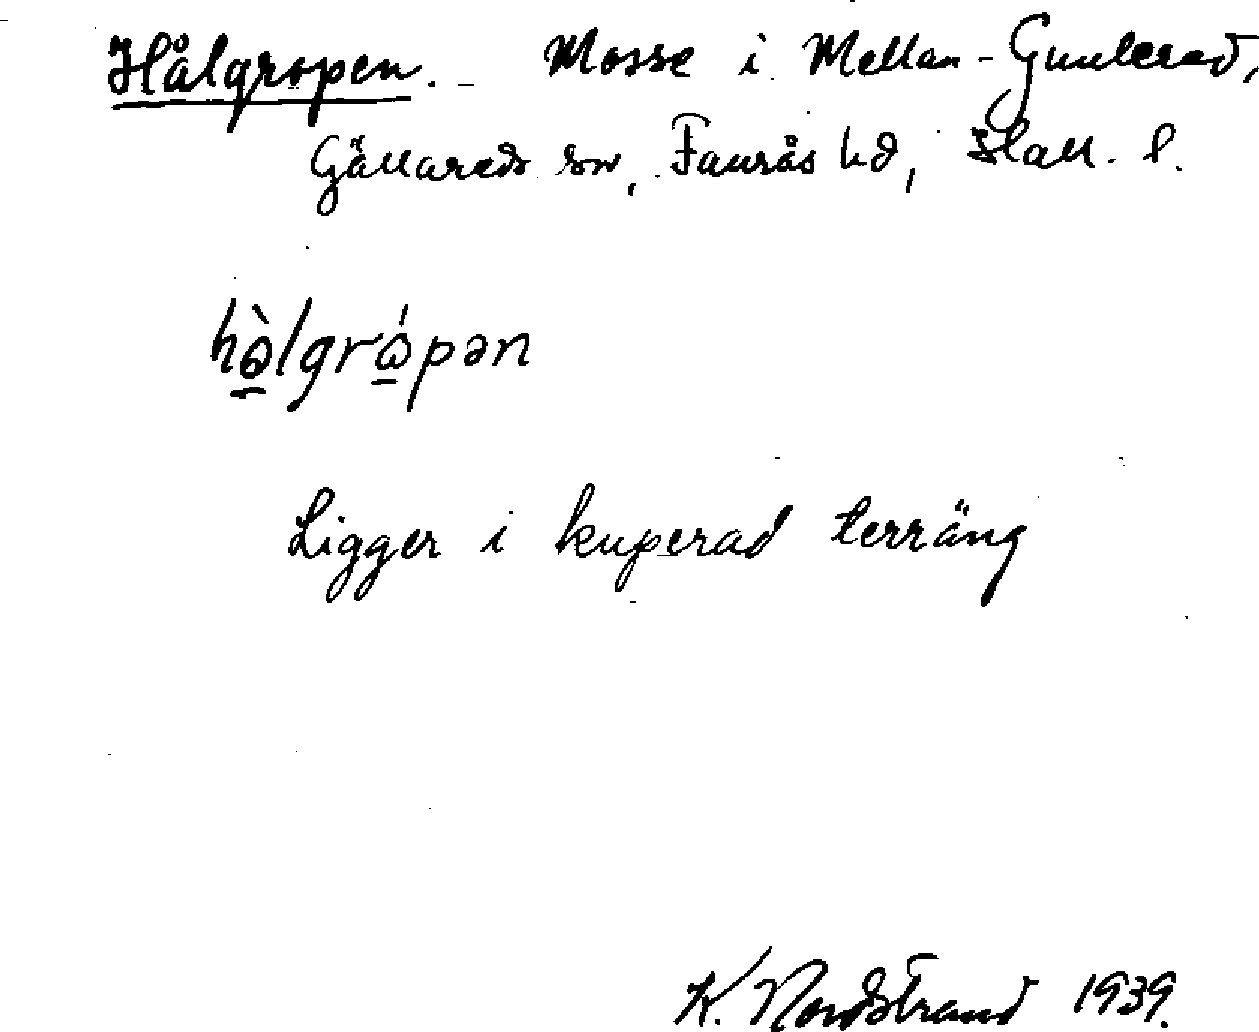 Hålgropen. – Mosse i Mellan-Gunnered,
Gällareds sn, Faurås hd, Hall. l.
hòlgrópən
Ligger i kuperad terräng
K. Nordstrand 1939.